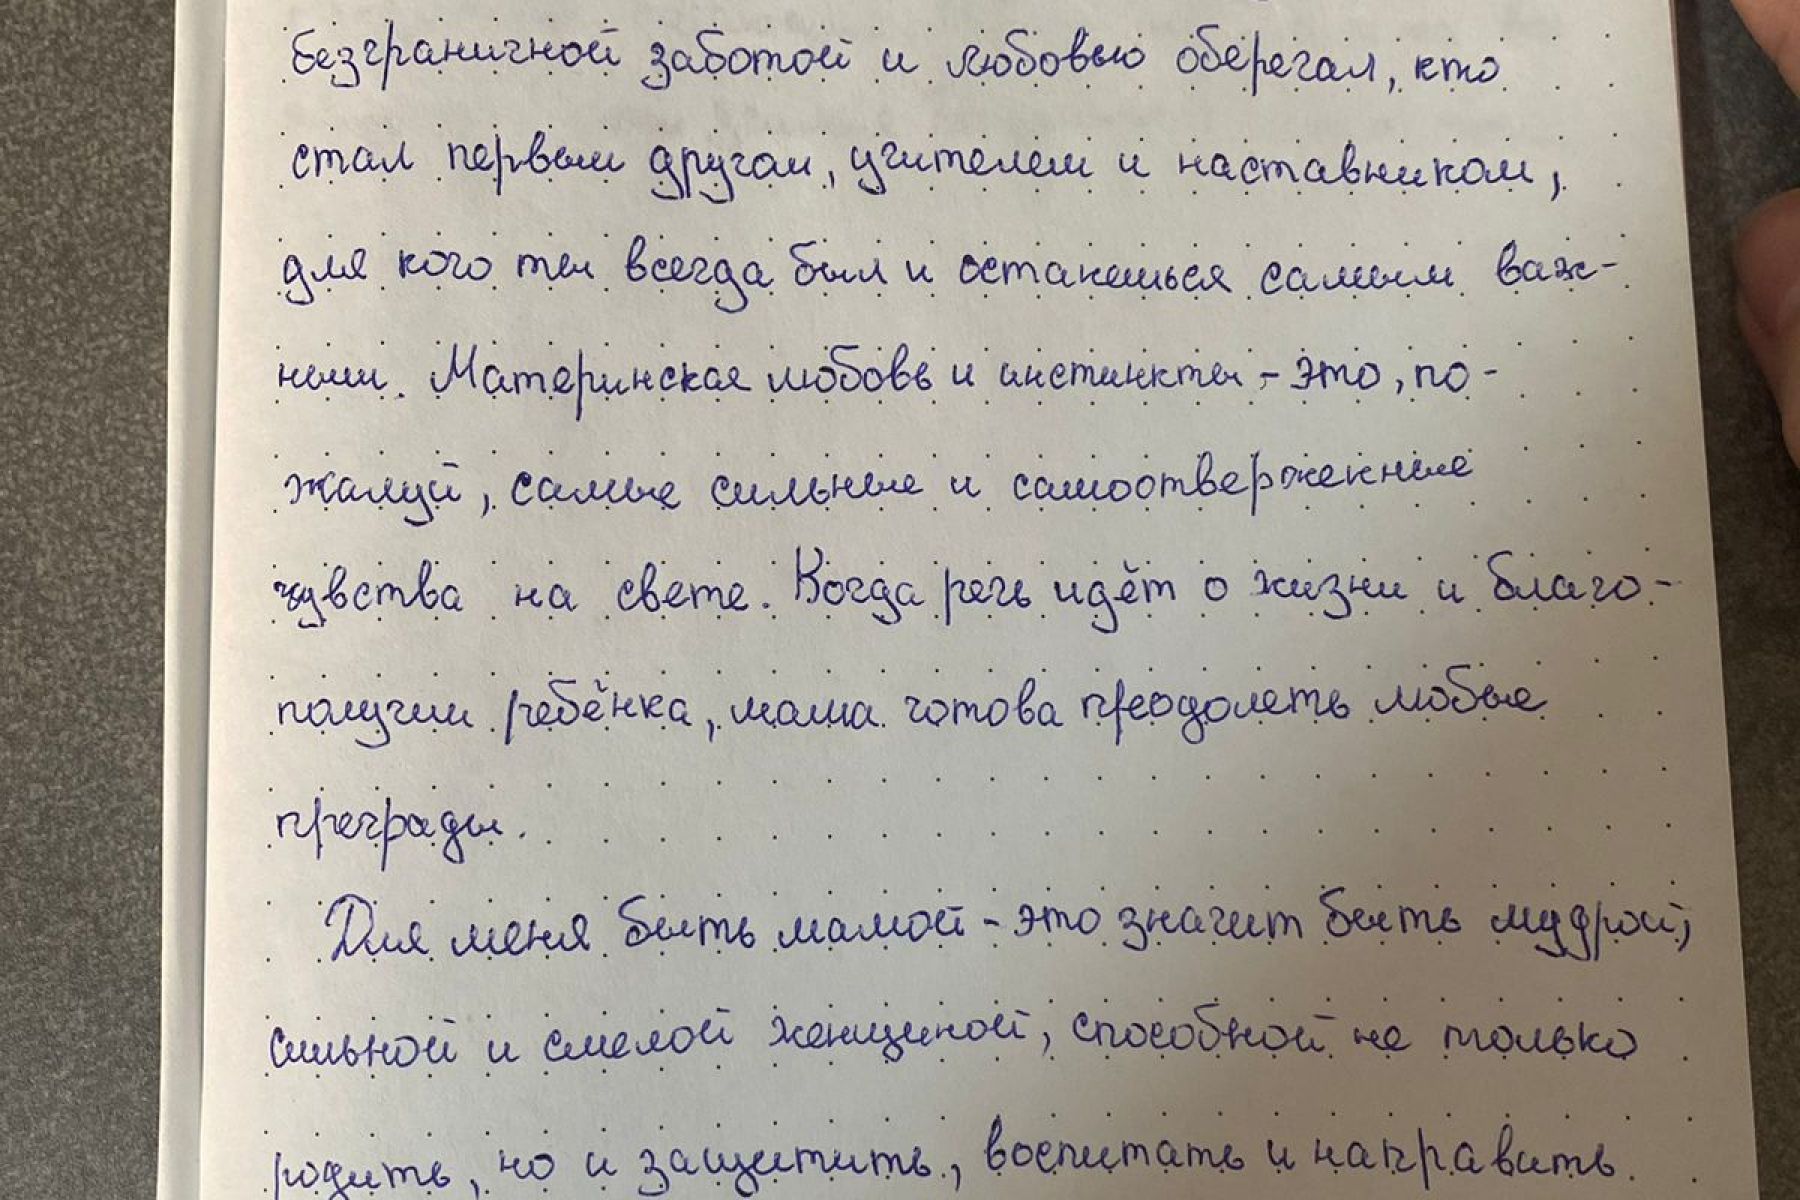 безграничной заботой и любовью оберегал, кто
стал первым другом, учителем и наставником,
для кого ты всегда был и остаешься самым важ-
ным. Материнская любовь и инстинкты - это, по-
жалуй, самые сильные и самоотверженные
чувства на свете. Когда речь идёт о жизни и благо-
получии ребёнка, мама готова преодолеть любые
преграды.
Для меня быть мамой - это значит быть мудрой,
сильной и смелой женщиной, способной не только
родить, но и защитить, воспитать и направить.